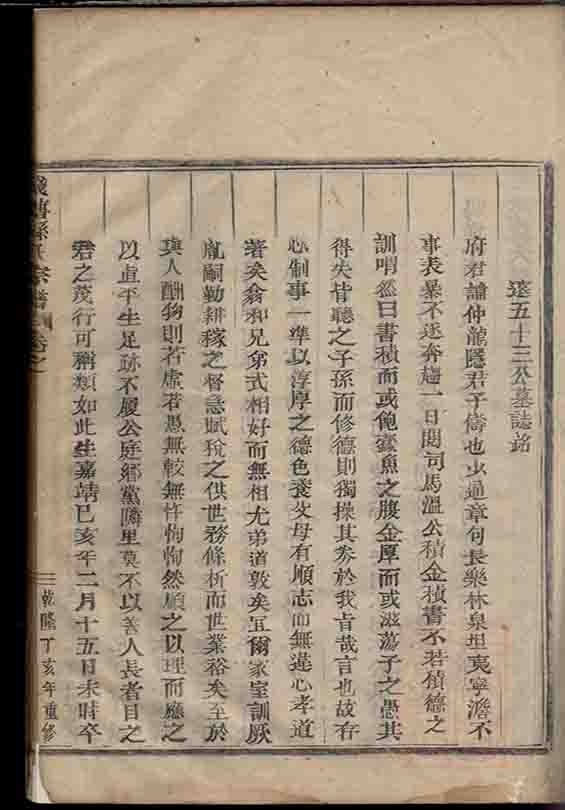 遠五十三公墓誌銘
府君諱仲龍隱君子儔也少通章句長樂林泉坦夷寧澹不
事表暴不逐奔趨一日閱司馬溫公積金積書不若積德之
訓喟然曰書積而或飽蠹魚之腹金厚而或滋蕩子之愚其
得失皆聽之子孫而修德則獨操其券於我旨哉言也故存
心制事一準以淳厚之德色養父母有順志而無違心孝道
著矣翕和兄弟式相好而無相尤弟道敦矣宜爾家室訓厥
胤嗣勤耕稼之督急賦稅之供世務條析而世業裕矣至於
與人酬物則若虛若愚無較無忤恂恂然順之以理而應之
以直平生足跡不履公庭鄉黨隣里莫不以善人長者目之
君之茂行可稱類如此生嘉靖己亥年二月十五日未時卒
孫氏宗譜 卷之
乾隆丁亥年重修